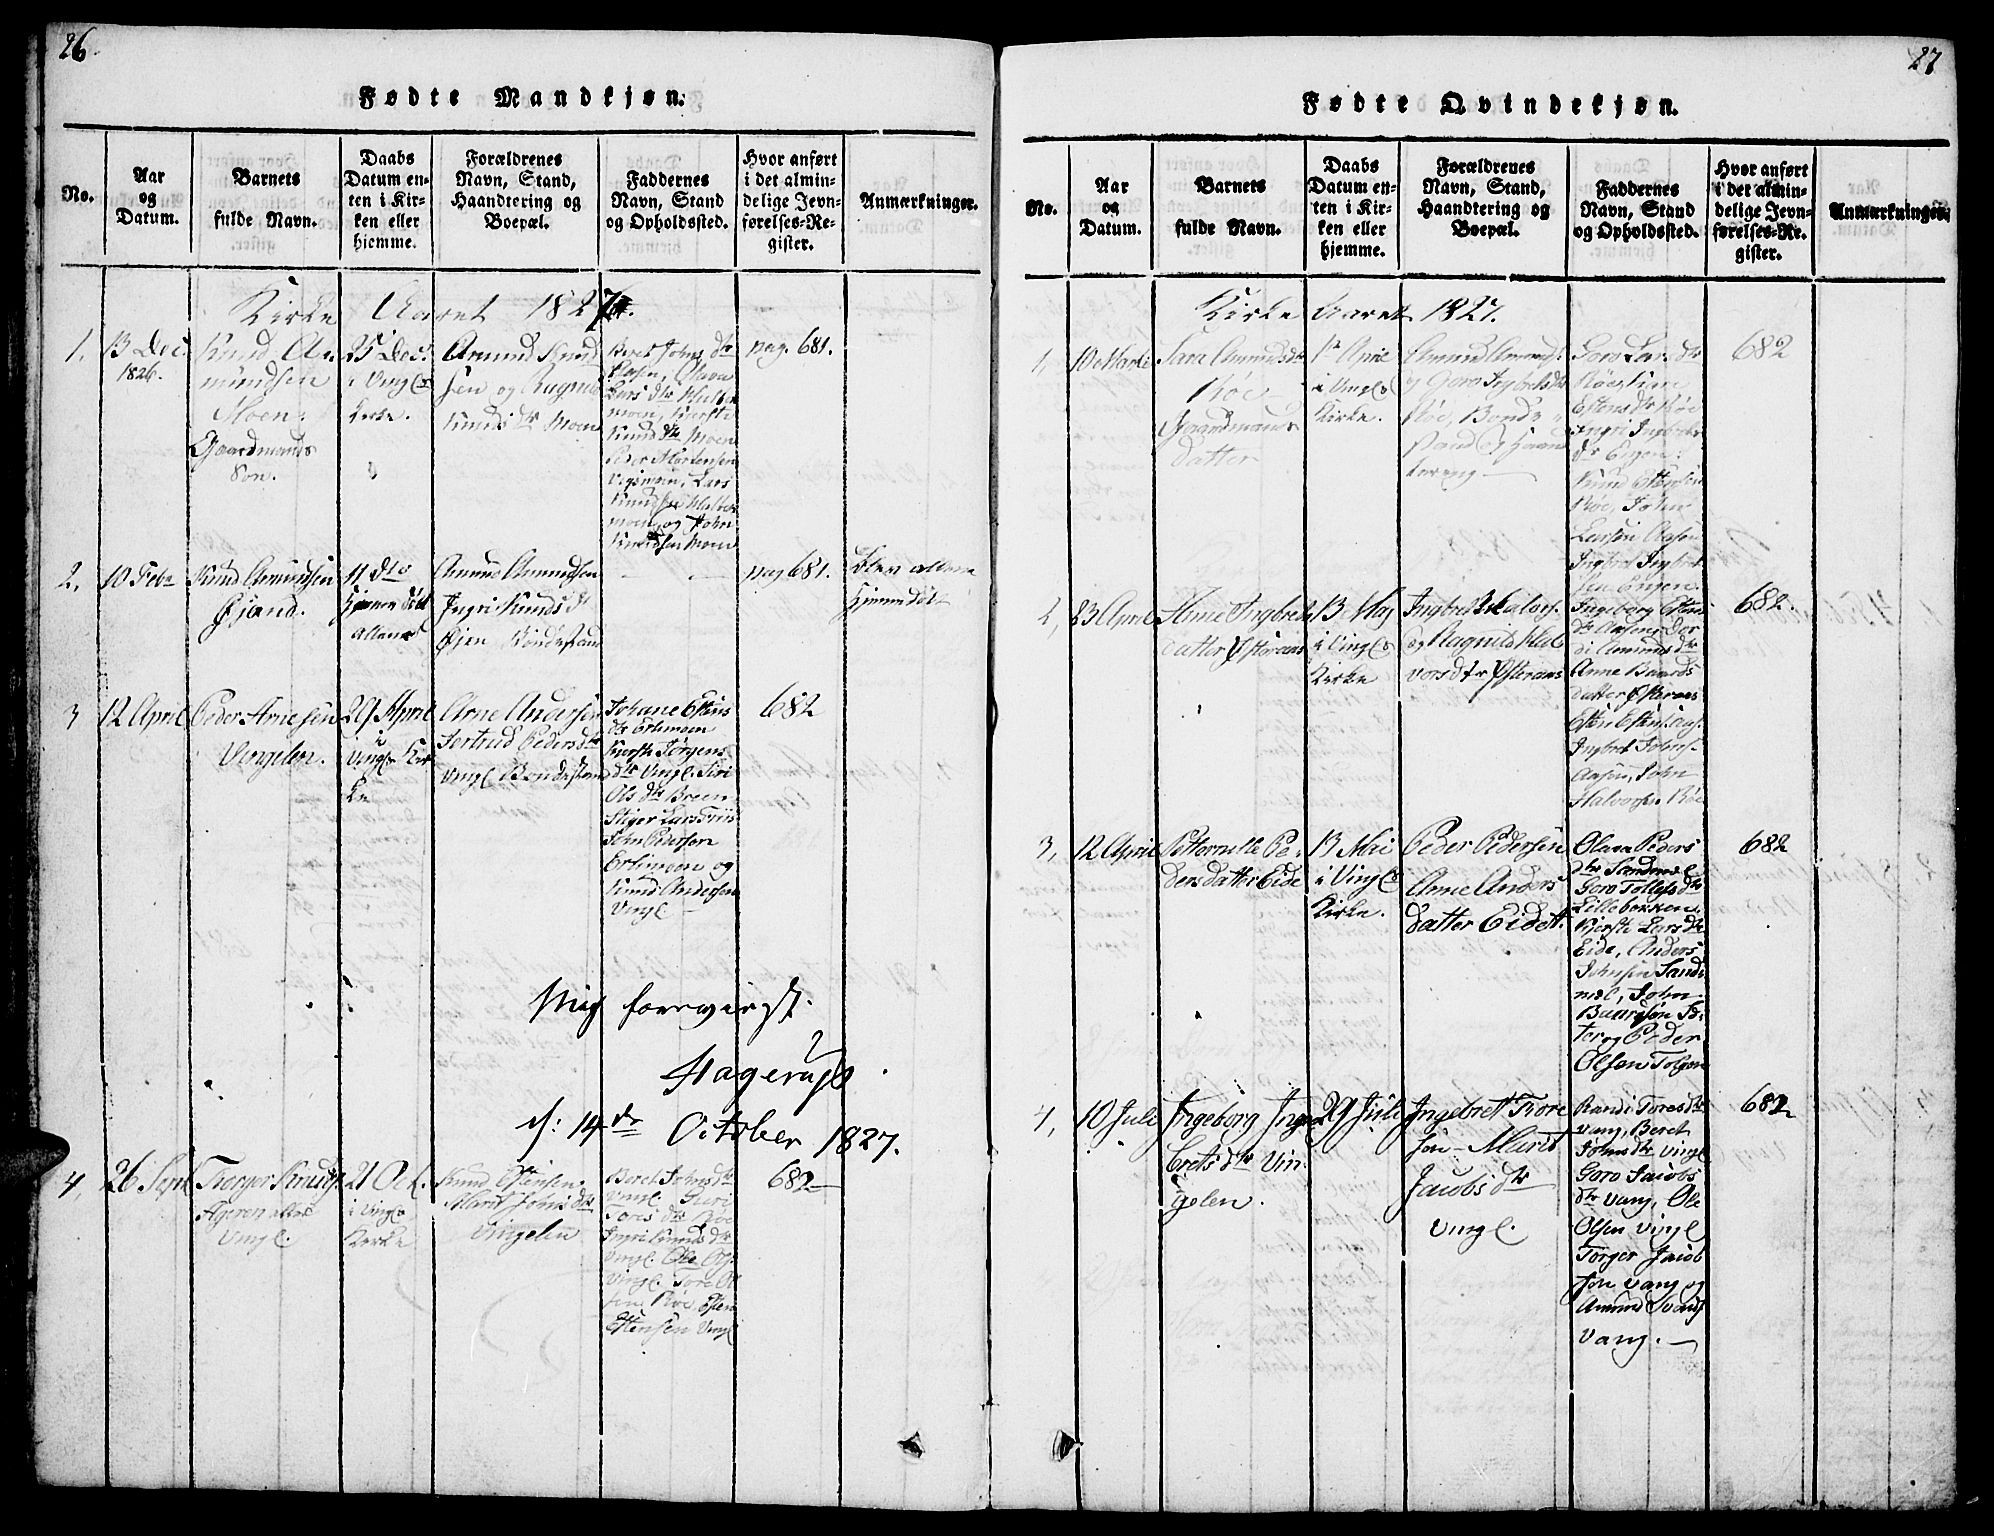 26.
Fødte Mandkjøn.
No.
Aar
og
Datum.
Barnets
fulde Navn.
Daabs
Datum en-
ten i Kir-
ken eller
hjemme.
Forældrenes
Navn, Stand,
Haandtering og
Boepæl.
Faddernes
Navn, Stand
og Opholdssted.
Hvor anført
i det almin-
delige Jevn-
førelses-Re-
gister.
Anmærkninger.
Kirke Aaret 1827.
1.
13 Dec.
1826.
Knud A
mundsen
Moen.
Gaardmands
Søn.
25 Dec.
i Vingl
Kirke.
Amund Knud
sen og Ragnild
Knuds dr Moen
Beret Johns dr
Olava
Lars dr
moen, Kjersti
Knud dtr Moen
Peder Mortensen
Lars
Knudsen
moen og John
Knudsen Moen
pag. 681.
2.
10 Febr
Knud Amundsen
Øjand.
11 dto
Hjemme døbt
Amund Amundsen
Ingri Knuds dr
Øjen Bondestand
pag 681.
Blev allene
Hjemmedøbt
3
12 April
Peder Arnesen
Vingelen.
29 April
i
Vingl Kir
ke
Arne Andersen
Gertrud Peders dtr
Vingl Bondestand
Johane Estens
dtr Erlimoen
Kjersti Jørgens
dtr Vingl. Siri
Ols dtr Breen
Stiger Larsen
John Pedersen
Erlimoen og
Knud Andersen
Vingl
682
Mig forevist.
Hagerup
d: 14de October 1827.
4,
26 Sept
Torger Knuds.
Ageren
Vingl.
21 Oct.
i Vingl
Kirke
Knud Estensen
Marit Johns dtr
Vingelen
Beret Johns dtr
Vingl.
Tores dtr Røe
Ingri Knuds dtr
Vingl. Ole Ols.
Vingl. Tore Ol
sen Røe Esten
Estensen Vingl
682
27
Fødte Qvindekjøn.
No.
Aar
og
Datum.
Barnets
fulde Navn.
Daabs
Datum en-
ten i Kir-
ken eller
hjemme.
Forældrenes
Navn, Stand,
Haandtering og
Boepæl.
Faddernes
Navn, Stand
og Opholdssted.
Hvor anført
i det almin-
delige Jevn-
førelses-Re-
gister.
Anmærkninger.
Kirke Aaret 1827.
1,
10 Marti
Sara Amundsdtr
Røe
Gaardmands
datter
1te April
i Vingl
Kirke.
Amund Amunds.
og Goro Ingbrets dtr
Røe, Bonde
stand og Haand
tering
Goro Lars dtr
Røe
Estens dtr Røe
Ingri Ingbrets
dtr Engen.
Knud Estensen
Røe, John
Larsen Aasen
Ingbret Ingbret
sen Engen.
682
2,
23 April
Anne Ingbrets
datter Østeraas
13 Maj
i Vingl
Kirke
Ingbret Halvors.
og Ragnild Hal
vorsdtr Østeraas
Ingeborg Estens
dtr Aasen, Dor
di Amunds dtr
Anne Baards
datter Østeraas
Esten Estensen
Ingbret Johns.
Aasen, John
Halvorsen Røe
682.
3,
12 April
Petternille Pe-
dersdatter Eide
13 Mai
i Vingl
Kirke.
Peder Pedersen
Anne Anders
datter Eidet.
Olava Peders
dtr Sandmæl
Goro Tollefs dtr
Lillebekken.
Kjersti Lars dtr
Eide, Anders
Johnsen Sand
mæl, John
Baardsen
og Peder
Olsen Tolgen
682
4,
10 Juli
Ingeborg Inge-
brets dtr Vin-
gelen.
29 Juli
Ingebret Tore
sen Marit
Jacobs dtr
Vingl.
Randi Tores dtr
Vang, Beret
Johns dtr Vingl
Goro Jacobs
dtr Vang, Ole
Olsen Vingl
Torger Jacob
sen Vang og
Amund
Vang.
682